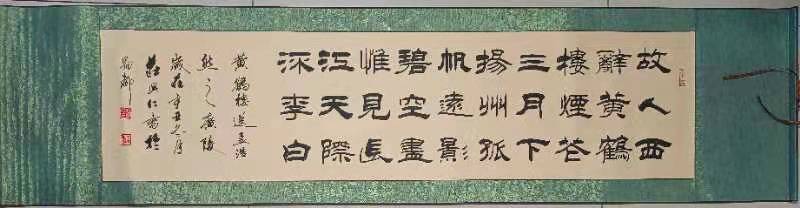 故人西
辭黃鶴
樓煙花
三月下
揚州孤
帆遠影
碧空盡
惟見長
江天際
流李白
黃鶴樓送孟浩
然之廣陵
歲在辛丑冬月
書於